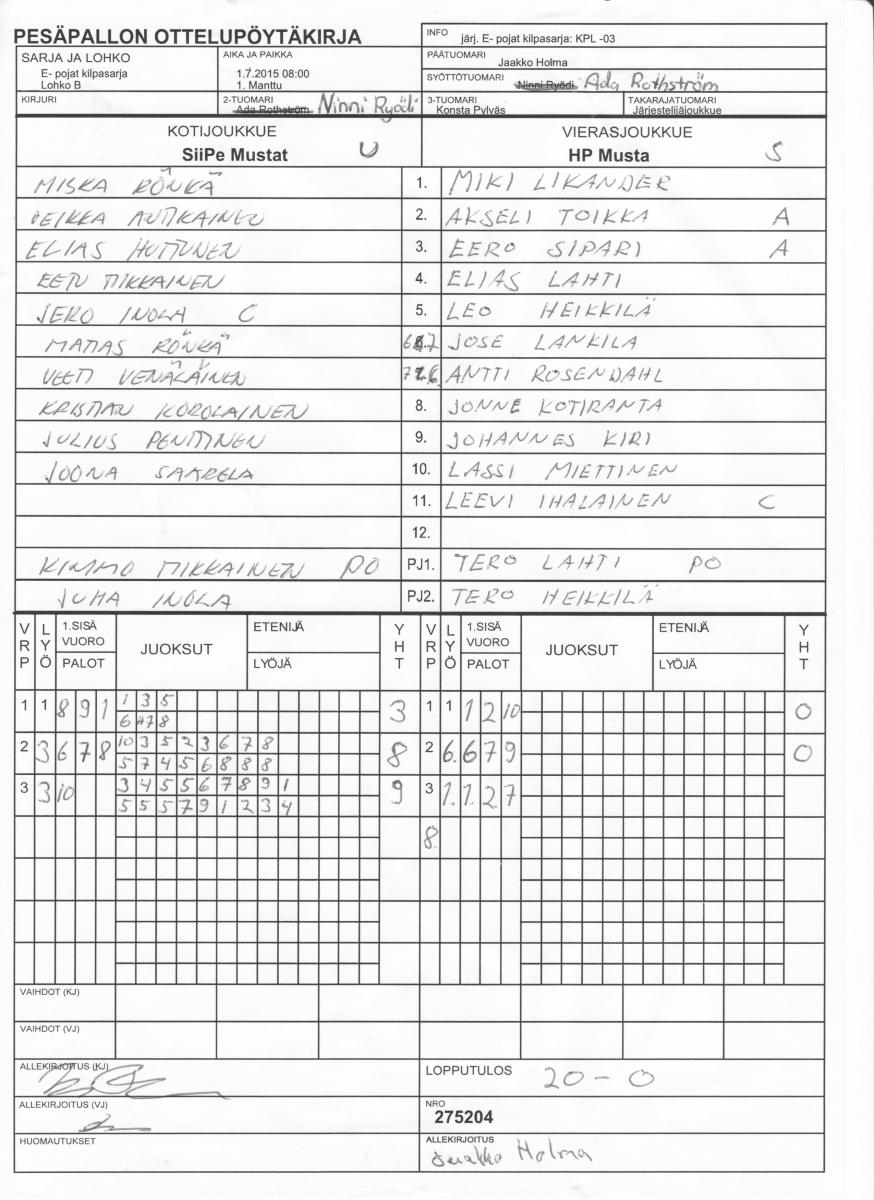 PESÄPALLON OTTELUPÖYTÄKIRJA
INFO järj. E- pojat kilpasarja: KPL -03
SARJA JA LOHKO
E- pojat kilpasarja
Lohko B
AIKA JA PAIKKA
1.7.2015 08:00
1. Manttu
PÄÄTUOMARI
Jaakko Holma
SYÖTTÖTUOMARI
Ninni Ryödi Ada Rothström
KIRJURI
2-TUOMARI
Ada Rothström Ninni Ryödi
3-TUOMARI
Konsta Pylväs
TAKARAJATUOMARI
Järjestelijäjoukkue
KOTIJOUKKUE
SiiPe Mustat U
VIERASJOUKKUE
HP Musta S
MISKA RÖNKÄ 1. MIKI LIKANDER
VEIKKA AUTKAINEN 2. AKSELI TOIKKA A
ELIAS HUTTUNEN 3. EERO SIPARI A
EETU MIKKAINEN 4. ELIAS LAHTI
JERO INOLA C 5. LEO HEIKKILÄ
MATIAS RÖNKÄ 6. 7 JOSE LANKILA
VEETI VENÄLÄINEN 7. 6 ANTTI ROSENDAHL
KRISTIAN KOROLAINEN 8. JONNE KOTIRANTA
JULIUS PENTTINEN 9. JOHANNES KIRI
JOONA SAARELA 10. LASSI MIETTINEN
11. LEEVI IHALAINEN C
12.
KIMMO MIKKAINEN PO PJ1. TERO LAHTI PO
JUHA INOLA PJ2. TERO HEIKKILÄ
VRP LYÖ 1.SISÄ VUORO PALOT JUOKSUT ETENIJÄ LYÖJÄ YHT VRP LYÖ 1.SISÄ VUORO PALOT JUOKSUT ETENIJÄ LYÖJÄ YHT
1 1 8 9 1 1 3 5 3 1 1 1 2 10 0
6 7 8
2 3 6 7 8 10 3 5 2 3 6 7 8 8 2 6. 6 7 9 0
5 7 4 5 6 8 8 8
3 3 10 3 4 5 5 6 7 8 9 1 9 3 1. 1. 2. 7
5 5 5 7 9 1 2 3 4
8.
VAIHDOT (KJ)
VAIHDOT (VJ)
ALLEKIRJOITUS (KJ)
LOPPUTULOS 20 - 0
ALLEKIRJOITUS (VJ)
NRO
275204
HUOMAUTUKSET
ALLEKIRJOITUS
Jaakko Holma